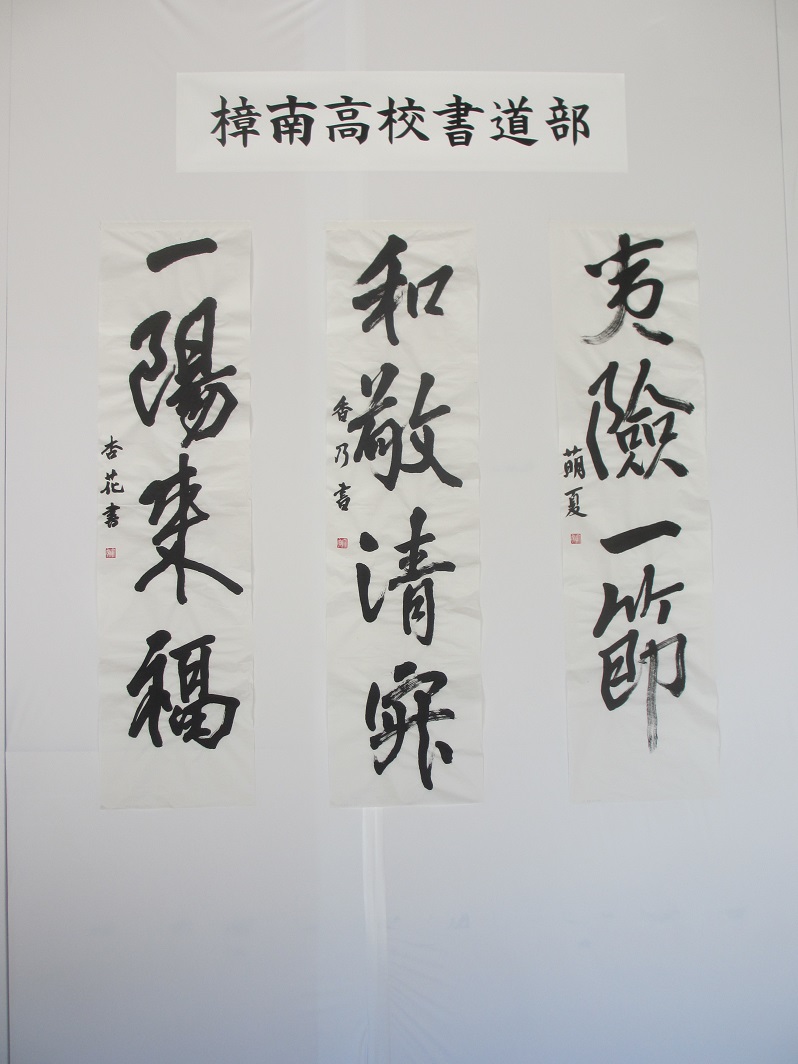 樟南高校書道部
夷險一節
萌夏
和敬清寂
香乃書
一陽来福
杏花書